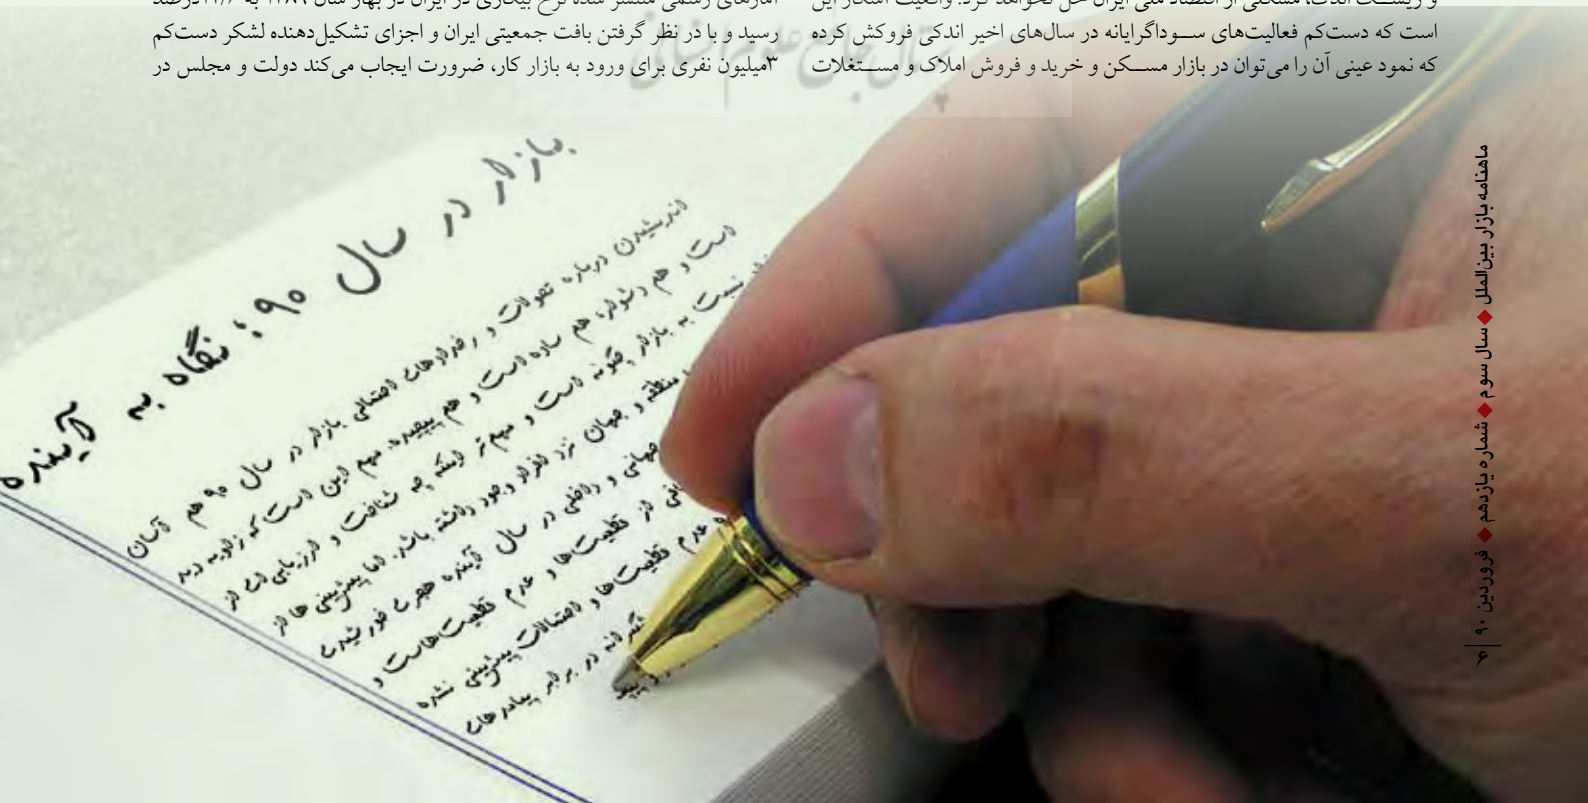 و ریسک اندک، مشکلی از اقتصاد ملی ایران حل نخواهد کرد. واقعیت آشکار این
است که دست‌کم فعالیت‌های سوداگرایانه در سال‌های اخیر اندکی فروکش کرده
که نمود عینی آن را می‌توان در بازار مسکن و خرید و فروش املاک و مستغلات
آمارهای رسمی منتشر شده نرخ بیکاری در ایران در بهار سال ۱۳۸۹ به درصد
رسید و با در نظر گرفتن بافت جمعیتی ایران و اجزای تشکیل‌دهنده لشکر دست‌کم
۳میلیون نفری برای ورود به بازار کار، ضرورت ایجاب می‌کند دولت و مجلس در
جامع علوم انسانی
بازار در سال ۹۰؛ نگاه به آینده
اندیشیدن درباره تحولات و رخدادهای احتمالی بازار در سال ۹۰ هم آسان
است و هم دشوار، هم ساده است و هم پیچیده. مهم این است که زاویه دید
نسبت به بازار چگونه است و مهم‌تر اینکه چه شناخت و ارزیابی ای از
منطقه و جهان نزد افراد وجود داشته باشد. اما پیش‌بینی ها از
جهانی و داخلی در سال آینده هجری خورشیدی
از قطعیت‌ها و عدم قطعیت‌هاست و
عدم قطعیت‌ها و احتمالات پیش‌بینی نشده
در برابر پیامدهای
ماهنامه بازار بین‌الملل ◆ سال سوم ◆ شماره یازدهم ◆ فروردین ۹۰ | ۶